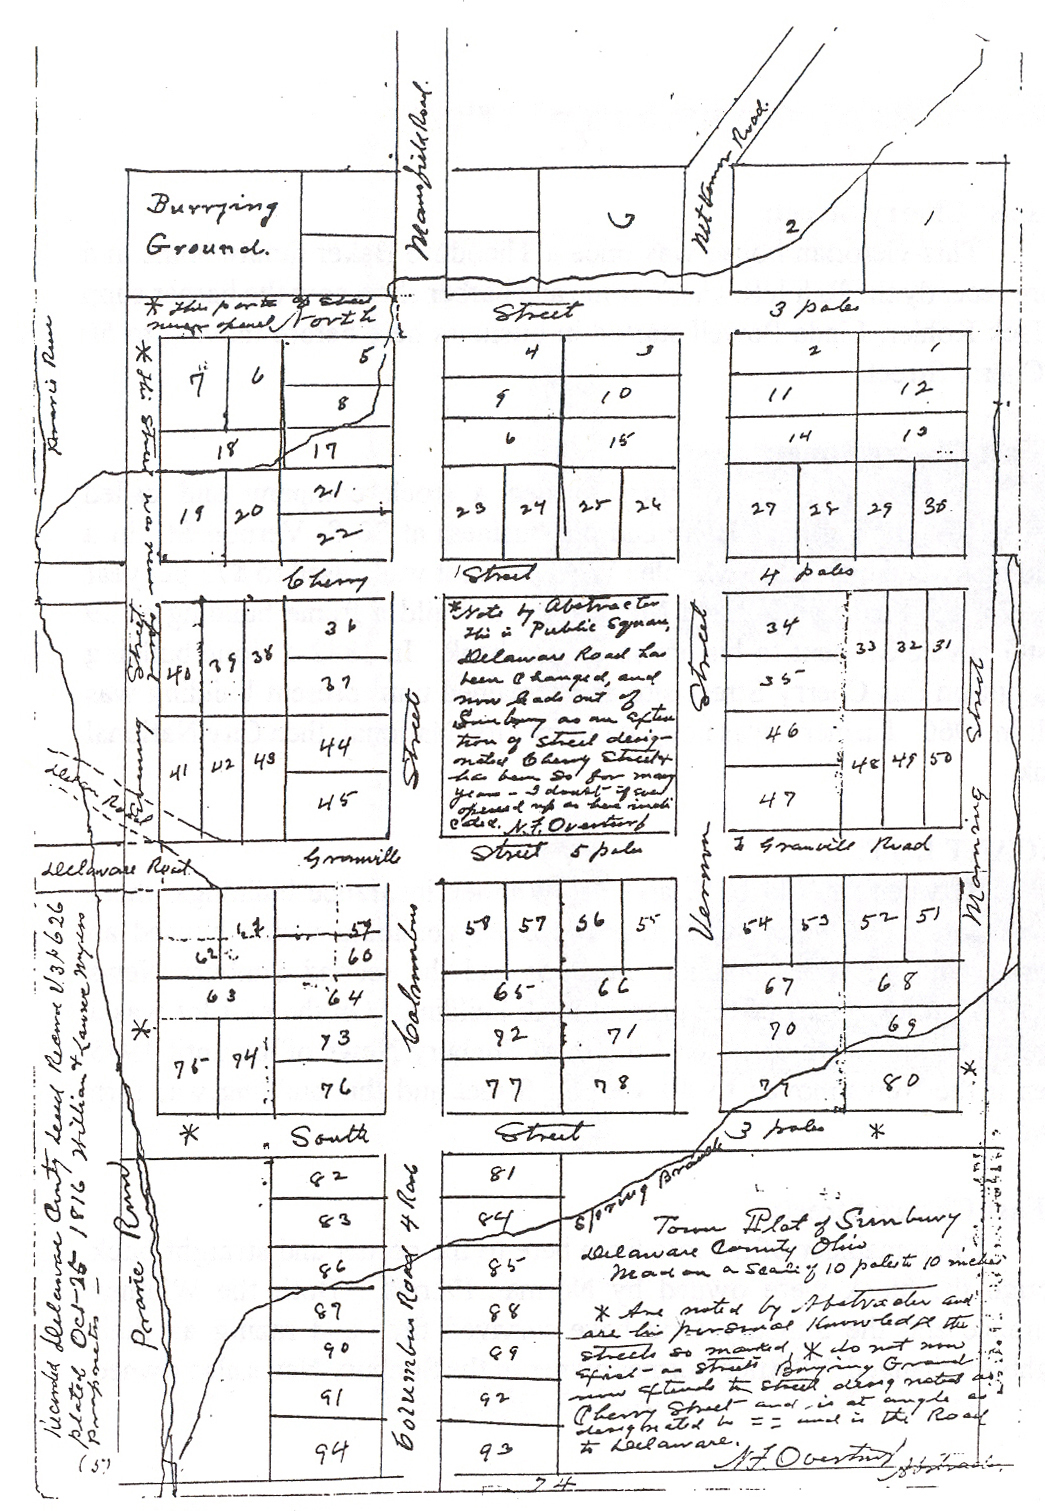 Mansfield Road.
Road.
Burrying
Ground.
2
1
* This part of street
never opened North
Street
3 poles
Prairie Run
* This Street was never
7
6
5
8
18
17
19
20
21
22
4
3
9
10
6
15
23
24
25
26
2
1
11
12
14
13
27
28
29
30
Cherry
Street
4 poles
Street
40
39
38
36
37
41
42
43
44
45
Street
*Note by Abstracter
this is Public Square,
Delaware Road has
been changed, and
now leads out of
Sunbury as an exten
tion of street desig-
nated Cherry Street &
has been so for many
years - I doubt if ever
opened up as here indi
cated. N.F. Overturf
Street
Vernon
34
35
46
47
33
32
31
48
49
50
Morning Street
Delaware Road
Granville
Street 5 poles
To Granville Road
62
59
60
63
64
75
74
73
76
Columbus
58
57
56
55
65
66
72
71
77
78
54
53
52
51
67
68
70
69
79
80
*
*
*
South
Street
3 poles
*
Prairie Run
82
83
86
87
90
91
94
Columbus Road 4 Rods
81
84
85
88
89
92
93
Spring Branch
Town Plat of Sunbury
Delaware County Ohio
Made on a Scale of 10 poles to 10 inches
* Are noted by Abstracter and
are his personal knowledge the
streets so marked, * do not now
exist - as streets Burying Ground
now extends to street designated as
Cherry Street and is at angle as
designated by == and is the Road
to Delaware.
N.F. Overturf
Abstracter.
Recorded Delaware County Deed Record V.3 P 626
plated Oct-25 1816 William & Lawrence Myers
proprietors -
(5)
74